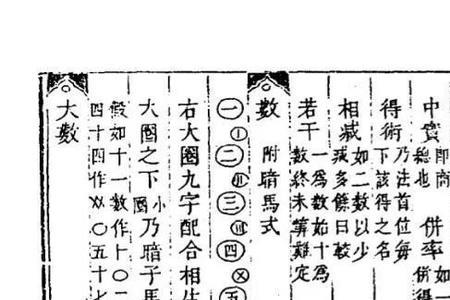 中實 即商總也 併率 如一併得
得術 乃法首位每下該得之名
相減 如二數以少減多餘曰較
若干 一為數始十為數終未算難定
數 附暗馬式
一〡二〢三〣四〤五
右大圈九字配合相生
大圈之下小圈乃暗子馬
假如十一數作卜〇二
四十四作〤〤〇五十七
大數